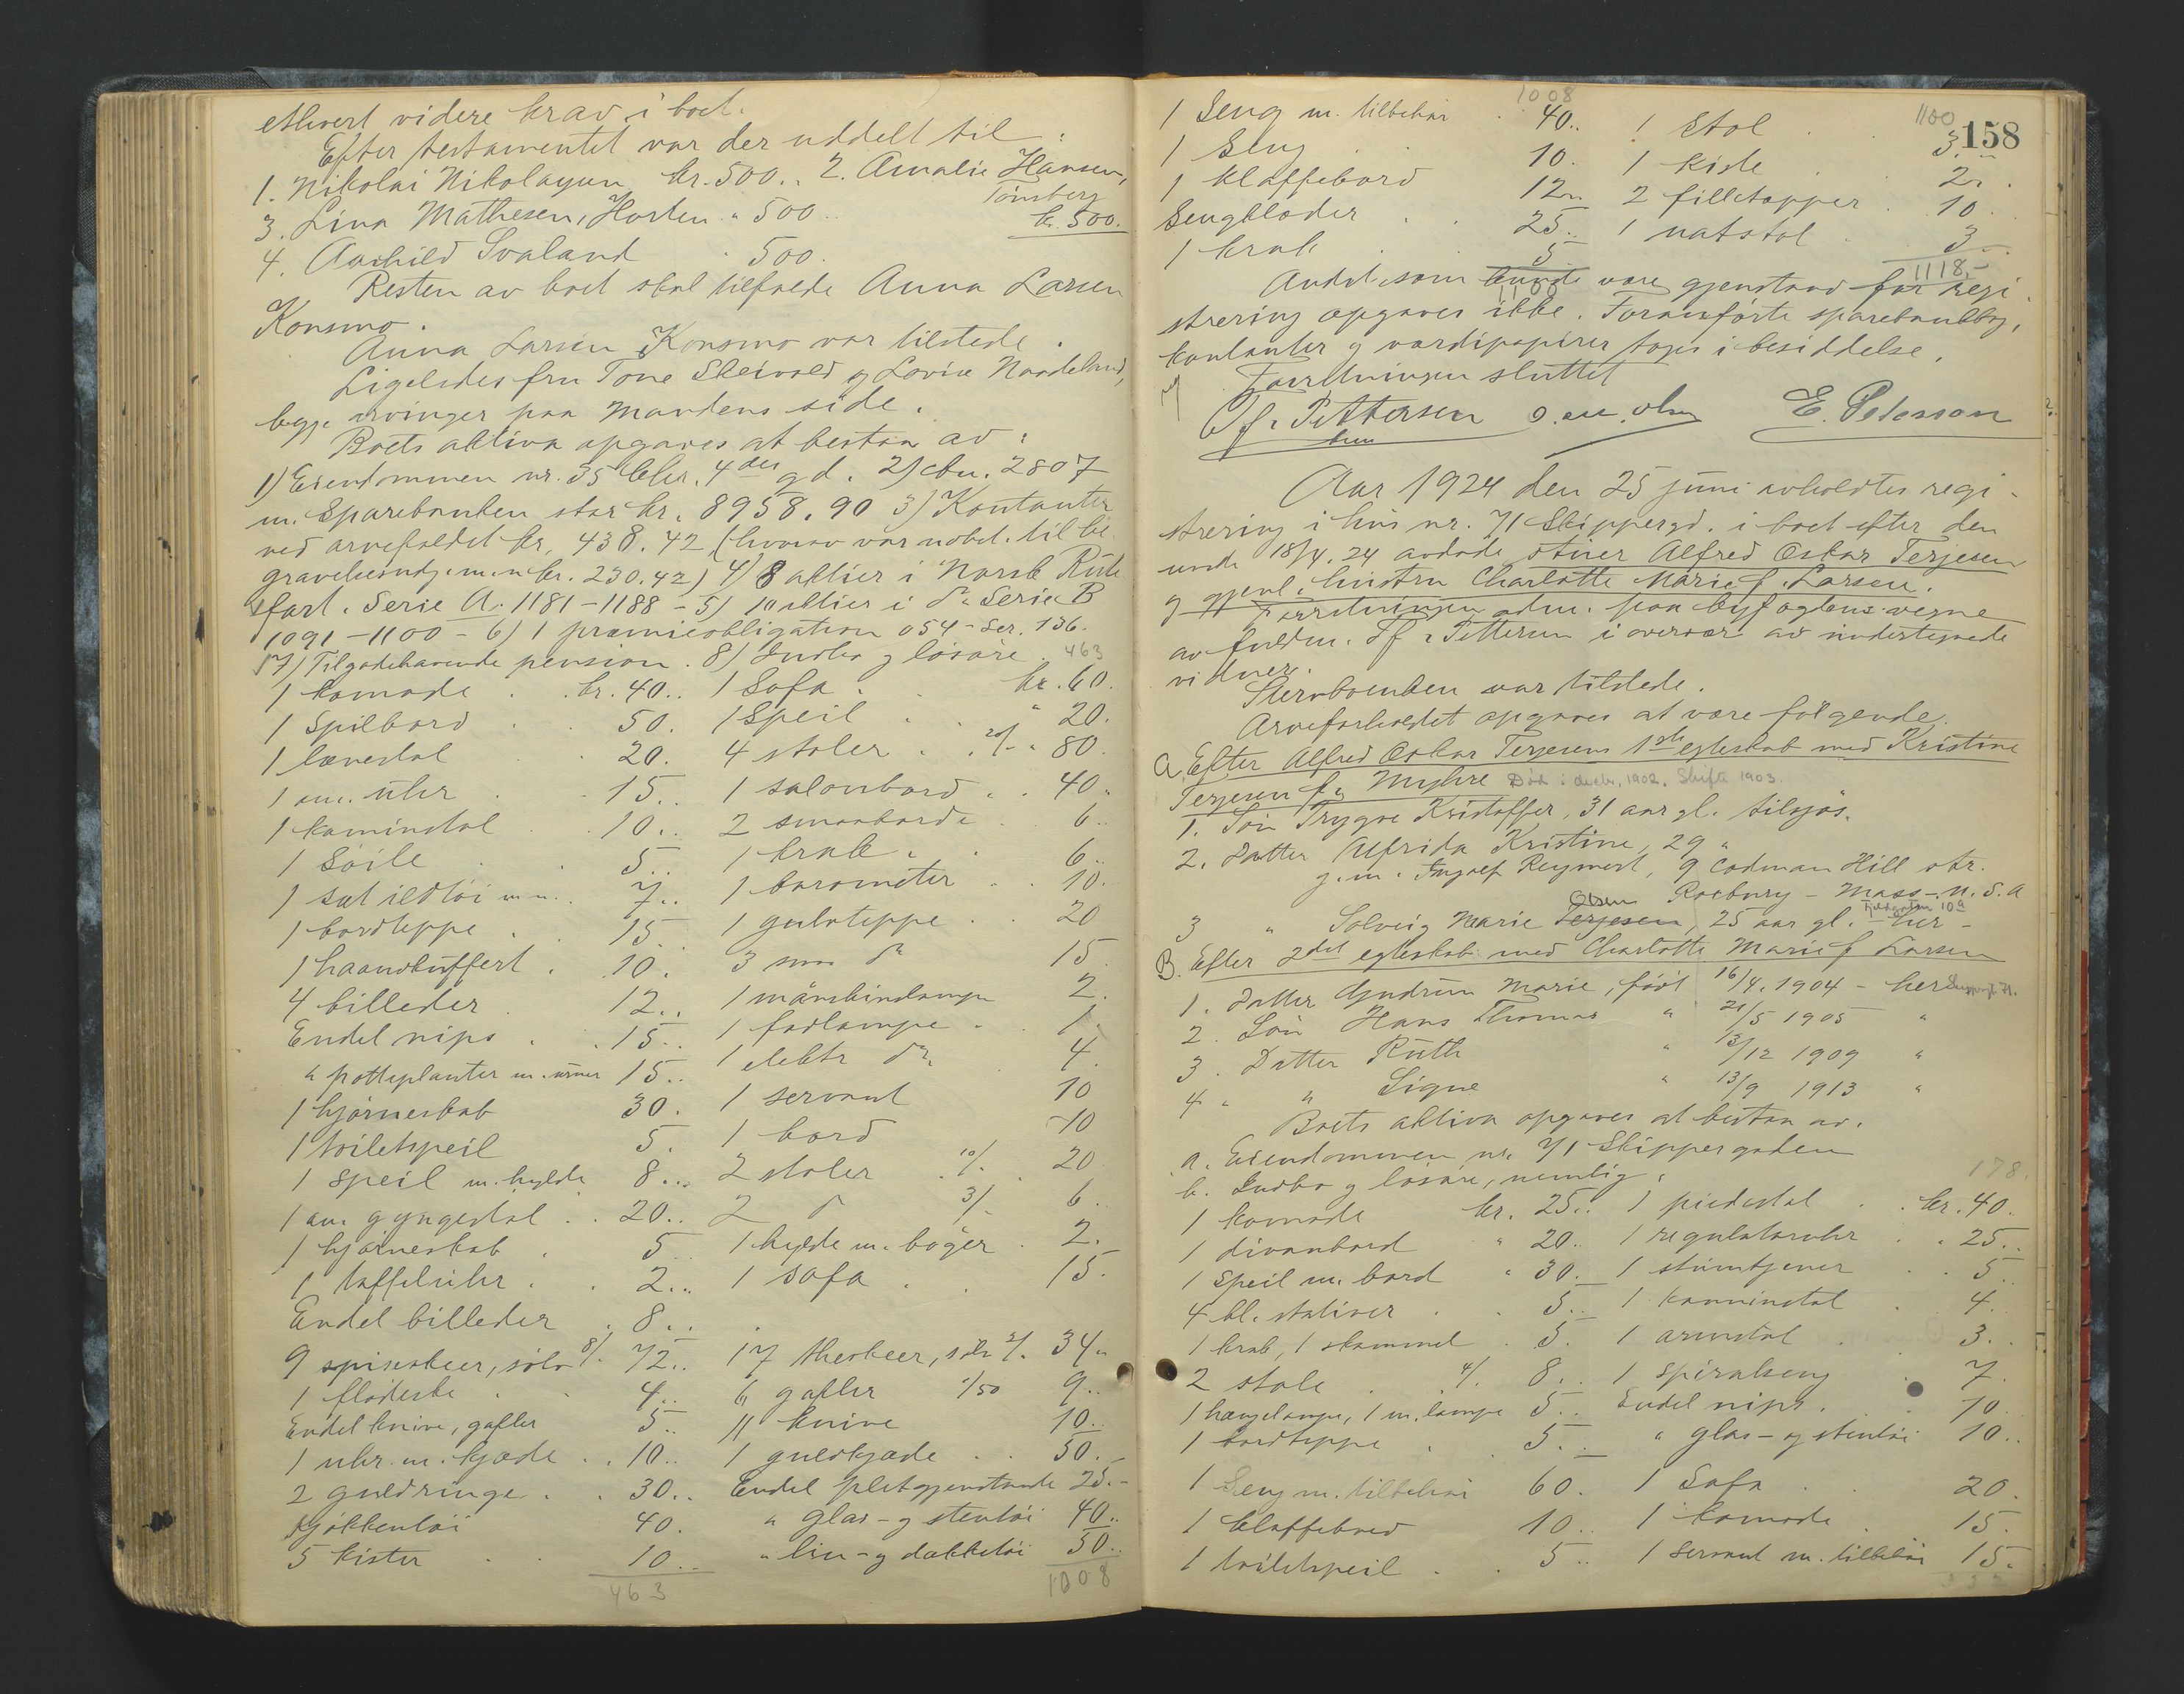 ethvert videre krav i boet.
Efter testamentet var der uddelt til:
1. Nikolai Nikolaysen kr. 500.. 2. Amalie Hansen,
Tønsberg
3. Lina Mathesen, Horten " 500.. kr. 500.
4. Aashild Svaland 500.
Resten av boet skal tilfalde Anna Larsen
Konsmo.
Anna Larsen Konsmo var tilstede.
Ligeledes fru Tone Skeivold og Lovise Naadeland,
begge arvinger paa mandens side.
Boets aktiva opgaves at bestaa av:
1) Eiendommen nr. 35 Chr. 4des gd. 2) cbn. 2807
m. Sparebanken stor kr. 8958.90 3) Kontanter
ved arvefaldet kr. 438.42 (hvorav var utbet. til be-
gravelsesutg. m.m. kr. 230.42) 4) 8 aktier i Norsk Rute
fart. Serie A. 1181-1188 - 5) 10 aktier i do Serie B
1091-1100 - 6) 1 præmieobligation 054 - Ser. 136.
7) Tilgodehavende pension. 8) Indbo g løsøre 463
1 komode . kr. 40.. 1 Sofa . kr. 60.
1 Spilbord . 50. 1 Speil . " 20.
1 lænestol . 20. 4 stoler . 20/- " 80.
1 am. uhr . 15.. 1 salonbord . . 40.
1 kaminstol . 10.. 2 smaaborde . 6..
1 Søile . 5.. 1 krak . 6..
1 sæt ildtøi m.m. 7.. 1 barometer . . 10.
1 bordteppe . 15.. 1 gulvteppe . . 20
1 haandkuffert . 10. 3 smaa do 15
4 billeder . 12.. 1 mårskindlampe 2.
Endel nips . 15.. 1 fadlampe . 1.
" potteplanter m. urner 15.. 1 elektr do. 4.
1 hjørneskab 30. 1 servant 10
1 toiletspeil 5. 1 bord 10
1 speil m. hylde 8... 2 stoler 10/- 20
1 am. gyngestol . . 20.. 2 do 3/- 6..
1 hjørneskab . 5.. 1 hylde m. bøger . 2.
1 taffeluhr . . 2... 1 sofa . 15.
Endel billeder . 8..
9 spiseskeer, sølv 8/- 72.. 17 theskeer, sølv 2/- 34..
1 flødeske . 4... 6 gafler 1/50 9..
Endel knive, gafler 5.. 11 knive 10..
1 uhr m. kjæde . . 10.. 1 guldkjæde . . 50..
2 guldringe . . 30.. Endel pletgjenstande 25.-
Kjøkkentøi 40. " glas- g stentøi 40..
5 kister . 10.. " lin- g dækketøi 50..
463 1008
1008 1100
158
1 Seng m. tilbehør . 40.. 1 Stol . 3...
1 Seng . 10. 1 kiste . 2..
1 klaffebord 12.. 2 filletæpper . 10.
Sengklæder . 25.. 1 natstol . 3..
1 krak . 5.
1100 1118,-
Andet som kunde være gjenstand for regi-
strering opgaves ikke. Foranførte sparebankbog,
kontanter g værdipapirer toges i besiddelse.
Forretningen sluttet
Tf. Pettersen E. Petersson
Aar 1924 den 25 juni avholdtes regi-
strering i hus nr. 71 Skippergd. i boet efter den
unde 18/4. 24 avdøde stuer Alfred Oskar Terjesen
g gjenl. hustru Charlotte Marie f. Larsen.
Forretningen adm. paa byfogdens vegne
av fuldm. Tf. Pettersen i overvær av undertegnede
vidner.
Stervboenken var tilstede.
Arveforholdet opgaves at være følgende.
A. Efter Alfred Oskar Terjesens 1ste egteskab med Kristine
Terjesen f. Myhre Død i decbr. 1902. Skifte 1903.
1. Søn Trygve Kristoffer, 31 aar gl. tilsjøs.
2. Datter Alfrida Kristine, 29 "
g.m. Ingolf Reymert, 9 Codman Hill str.
Roxbury - Mass. - U.S.A
Olsen
3 " Solveig Marie Terjesen, 25 aar gl. - her -
B. Efter 2det egteskab med Charlotte Marie f Larsen
1. Datter Gudrun Marie, født 16/4. 1904 - her Skippergt. 71.
2. Søn Hans Thomas " 21/5 1905 "
3. Datter Ruth " 13/12 1909 "
4 " " Signe " 13/9 1913 "
Boets aktiva opgaves at bestaa av.
a. Eiendommen nr. 71 Skippergaden
b. Indbo g løsøre, nemlig: 178.
1 komode kr. 25.. 1 piedestal . . kr. 40..
1 divanbord " 20.. 1 regulatoruhr . . 25..
1 Speil m. bord " 30.. 1 stumtjener . . 5..
4 bl. stativer . . 5.. 1 kaminstol . 4.
1 krak, 1 skammel . 5. 1 armstol . 3..
2 stole . 4/- 8.. 1 spiralseng . 7.
1 hængelampe, 1 m. lampe 5.. Endel nips . . 10.
1 bordteppe . 5.. " glas- g stentøi 10..
1 Seng m. tilbehør 60. 1 Sofa . 20.
1 klaffebord 10.. 1 komode . 15.
1 toiletspeil . . 5.. 1 servant m. tilbehør 15.